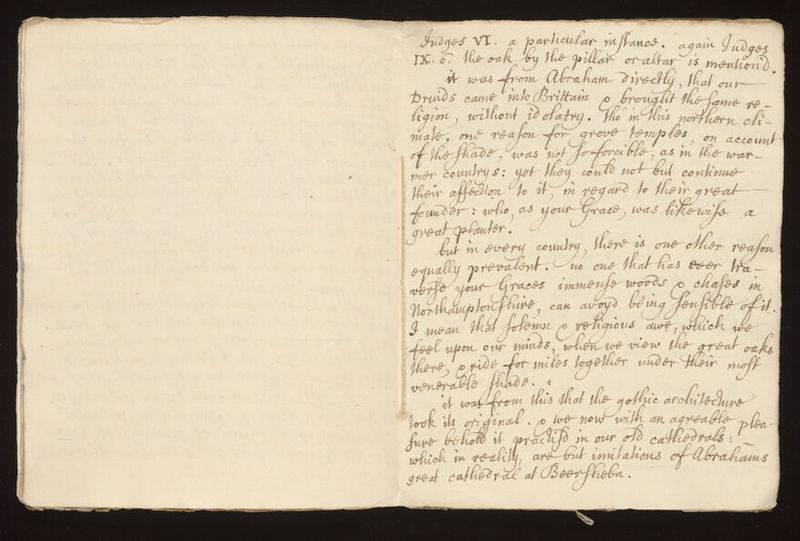 Judges VI. a particular instance. again Judges
IX. 6. the oak by the pillar or altar is mention'd.
it was from Abraham directly, that our
Druids came into Brittain & brought the same re-
ligion, without idolatry. tho' in this northern cli-
mate, one reason for grove temples, on account
of the shade, was not so forcible, as in the war-
mer countrys: yet they could not but continue
their affection to it, in regard to their great
founder: who, as your Grace, was likewise a
great planter.
but in every country, there is one other reason
equally prevalent. no one that has ever tra-
verse your Graces immense woods & chases in
Northamptonshire, can avoyd being sensible of it.
I mean that solemn & religious awe, which we
feel upon our minds, when we view the great oaks
there, & ride for miles together under their most
venerable shade.
it was from this that the gothic architecture
took its original. & we now with an agreable plea-
sure behold it practis'd in our old cathedrals:
which in reality, are but imitations of Abrahams
great cathedral at Beersheba.